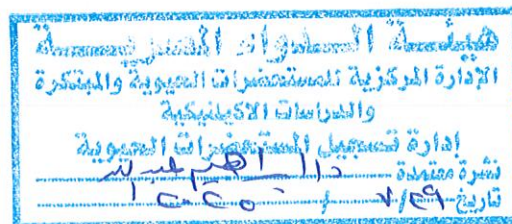 هيئة الدواء المصرية
الإدارة المركزية للمستحضرات الحيوية والمبتكرة
والدراسات الاكلينيكية
إدارة تسجيل المستحضرات الحيوية
نشرة معتمدة
تاريخ ٧/٢٩ /